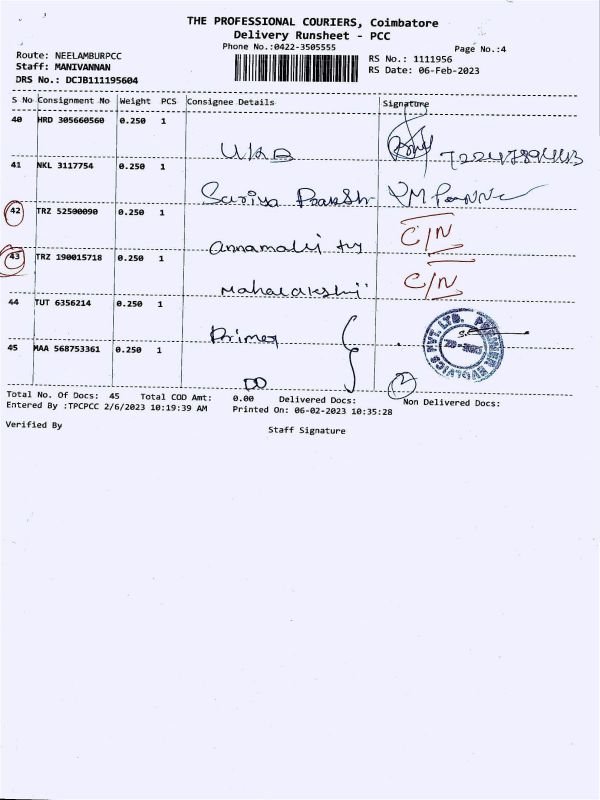 THE PROFESSIONAL COURIERS, Coimbatore
Delivery Runsheet - PCC
Phone No.:0422-3505555
Page No.:4
Route: NEELAMBURPCC
Staff: MANIVANNAN
DRS No.: DCJB111195604
RS No.: 1111956
RS Date: 06-Feb-2023
S No Consignment No Weight PCS Consignee Details Signature
40 HRD 305660560 0.250 1
41 NKL 3117754 0.250 1
Suriya Prakash
42 TRZ 52500090 0.250 1
C/N
Annamalai
43 TRZ 190015718 0.250 1
C/N
Mahalakshmi
44 TUT 6356214 0.250 1
Primer
45 MAA 568753361 0.250 1
DO
2
PREMIER EVOLVICS PVT. LTD.
Total No. Of Docs: 45 Total COD Amt: 0.00 Delivered Docs: Non Delivered Docs:
Entered By :TPCPCC 2/6/2023 10:19:39 AM Printed On: 06-02-2023 10:35:28
Verified By
Staff Signature